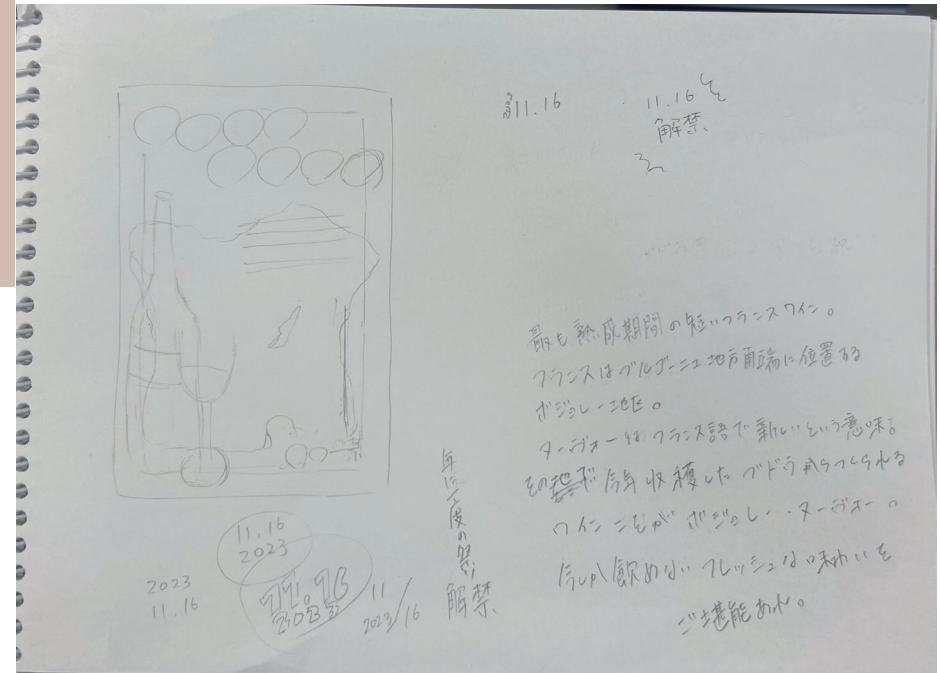 11.16
11.16
解禁
最も熟成期間の短いフランスワイン。
フランスはブルゴーニュ地方南端に位置する
ボジョレー地区。
ヌーヴォーはフランス語で新しいという意味。
その地で今年収穫したブドウからつくられる
ワインこそがボジョレー・ヌーヴォー。
今しか飲めないフレッシュな味わいを
ご堪能あれ。
年に一度の祭り
解禁
11.16
2023
2023
11.16
11.16
2023
11
2023/16